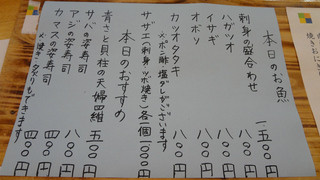 本日のお魚
刺身の盛合わせ 一五〇〇円
ハガツオ 八〇〇円
イサギ 八〇〇円
オボソ 八〇〇円
カツオタタキ 八〇〇円
※ポン酢、塩ダレがございます
サザエ(刺身、ツボ焼き)各一個 一〇〇〇円
本日のおすすめ
青さと貝柱の天婦羅 五〇〇円
サバの姿寿司 八〇〇円
アジの姿寿司 四〇〇円
カマスの姿寿司 四〇〇円